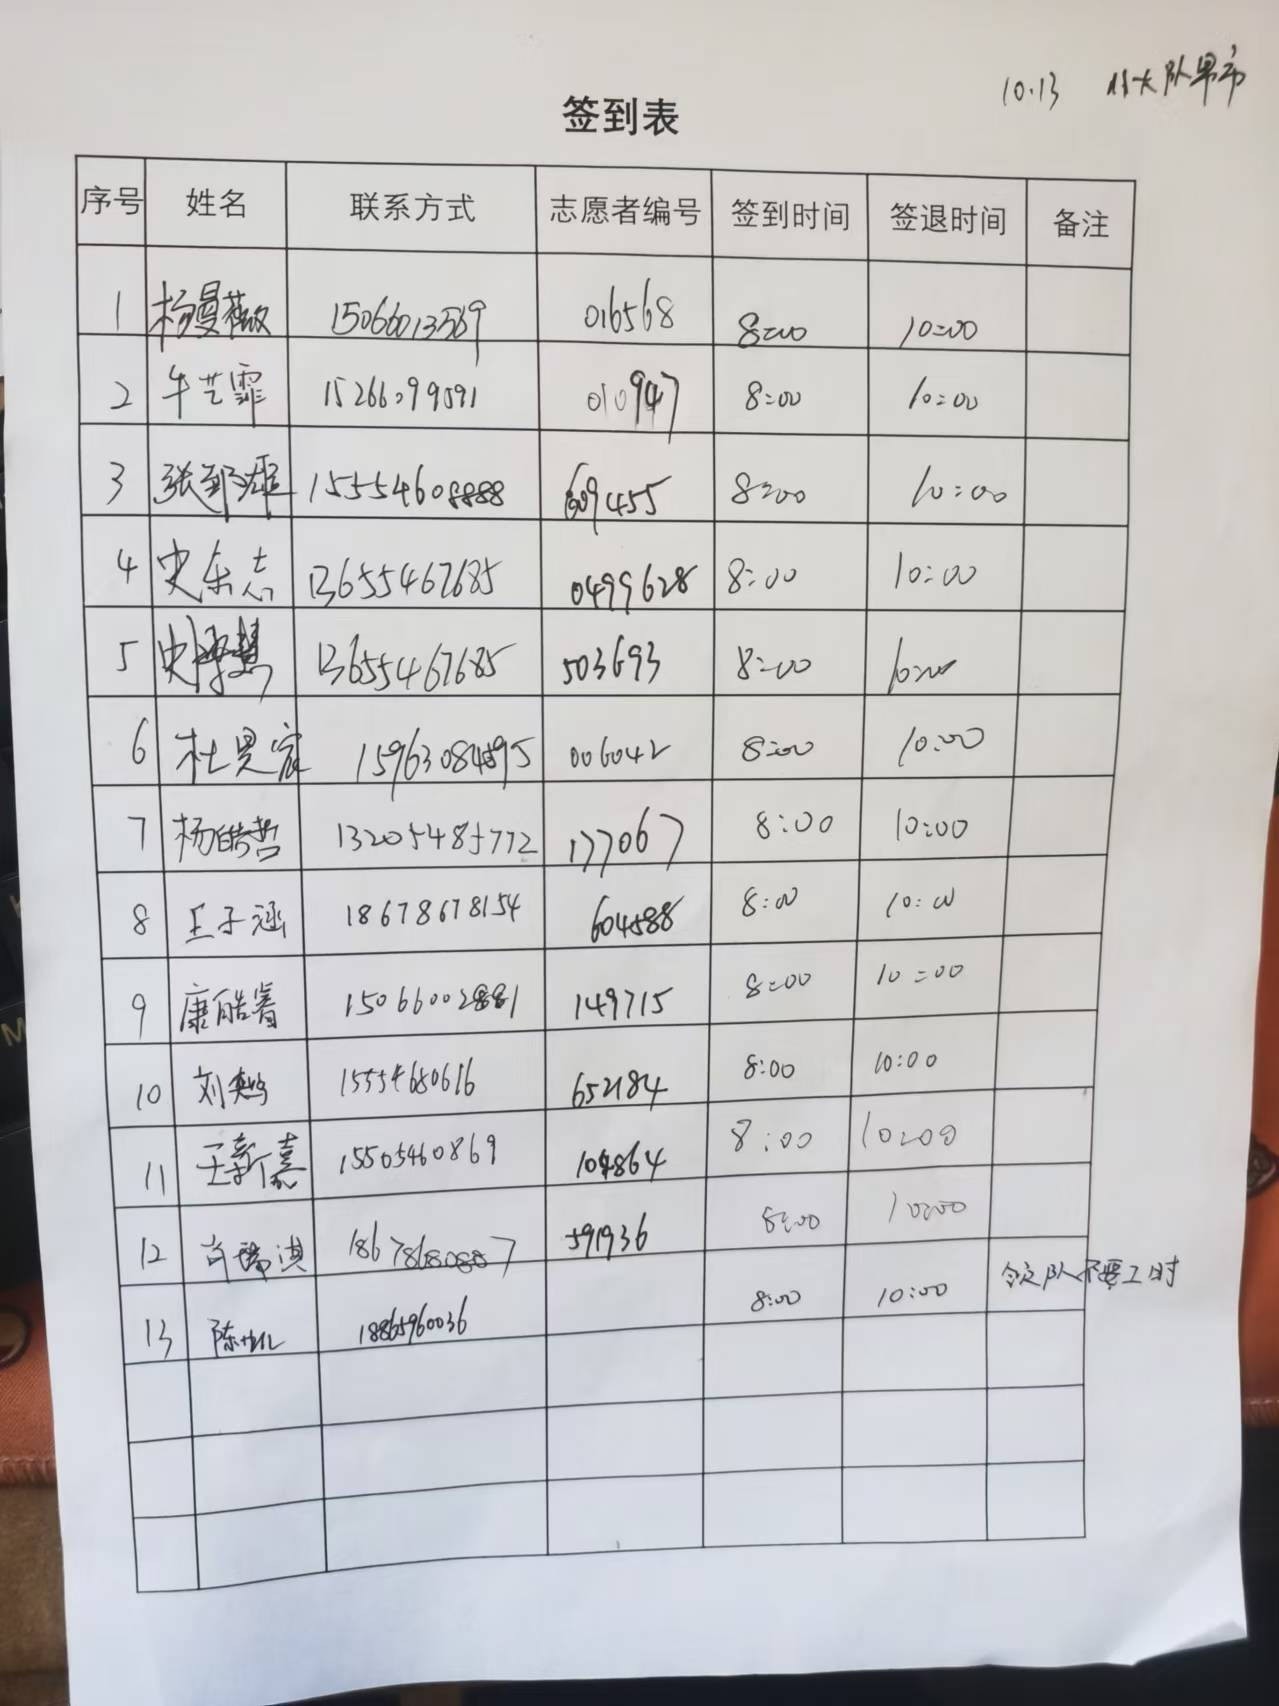 10.13 大队早市
签到表
序号 姓名 联系方式 志愿者编号 签到时间 签退时间 备注
1 杨曼薇 15066013569 016568 8:00 10:00
2 牛艺霏 15266099591 010947 8:00 10:00
3 张郅雄 15554608888 609455 8:00 10:00
4 史东志 13655467685 0499628 8:00 10:00
5 史 13655467685 503693 8:00 10:00
6 杜昊宸 006042 8:00 10:00
7 杨皓哲 13205485772 177067 8:00 10:00
8 王子涵 18678678154 604588 8:00 10:00
9 康皓睿 15066002881 149715 8:00 10:00
10 刘 15554680616 652184 8:00 10:00
11 王新嘉 15505460869 104864 8:00 10:00
12 肖瑞淇 18678680887 591936 8:00 10:00
13 陈 18865960036 8:00 10:00 领队不要工时